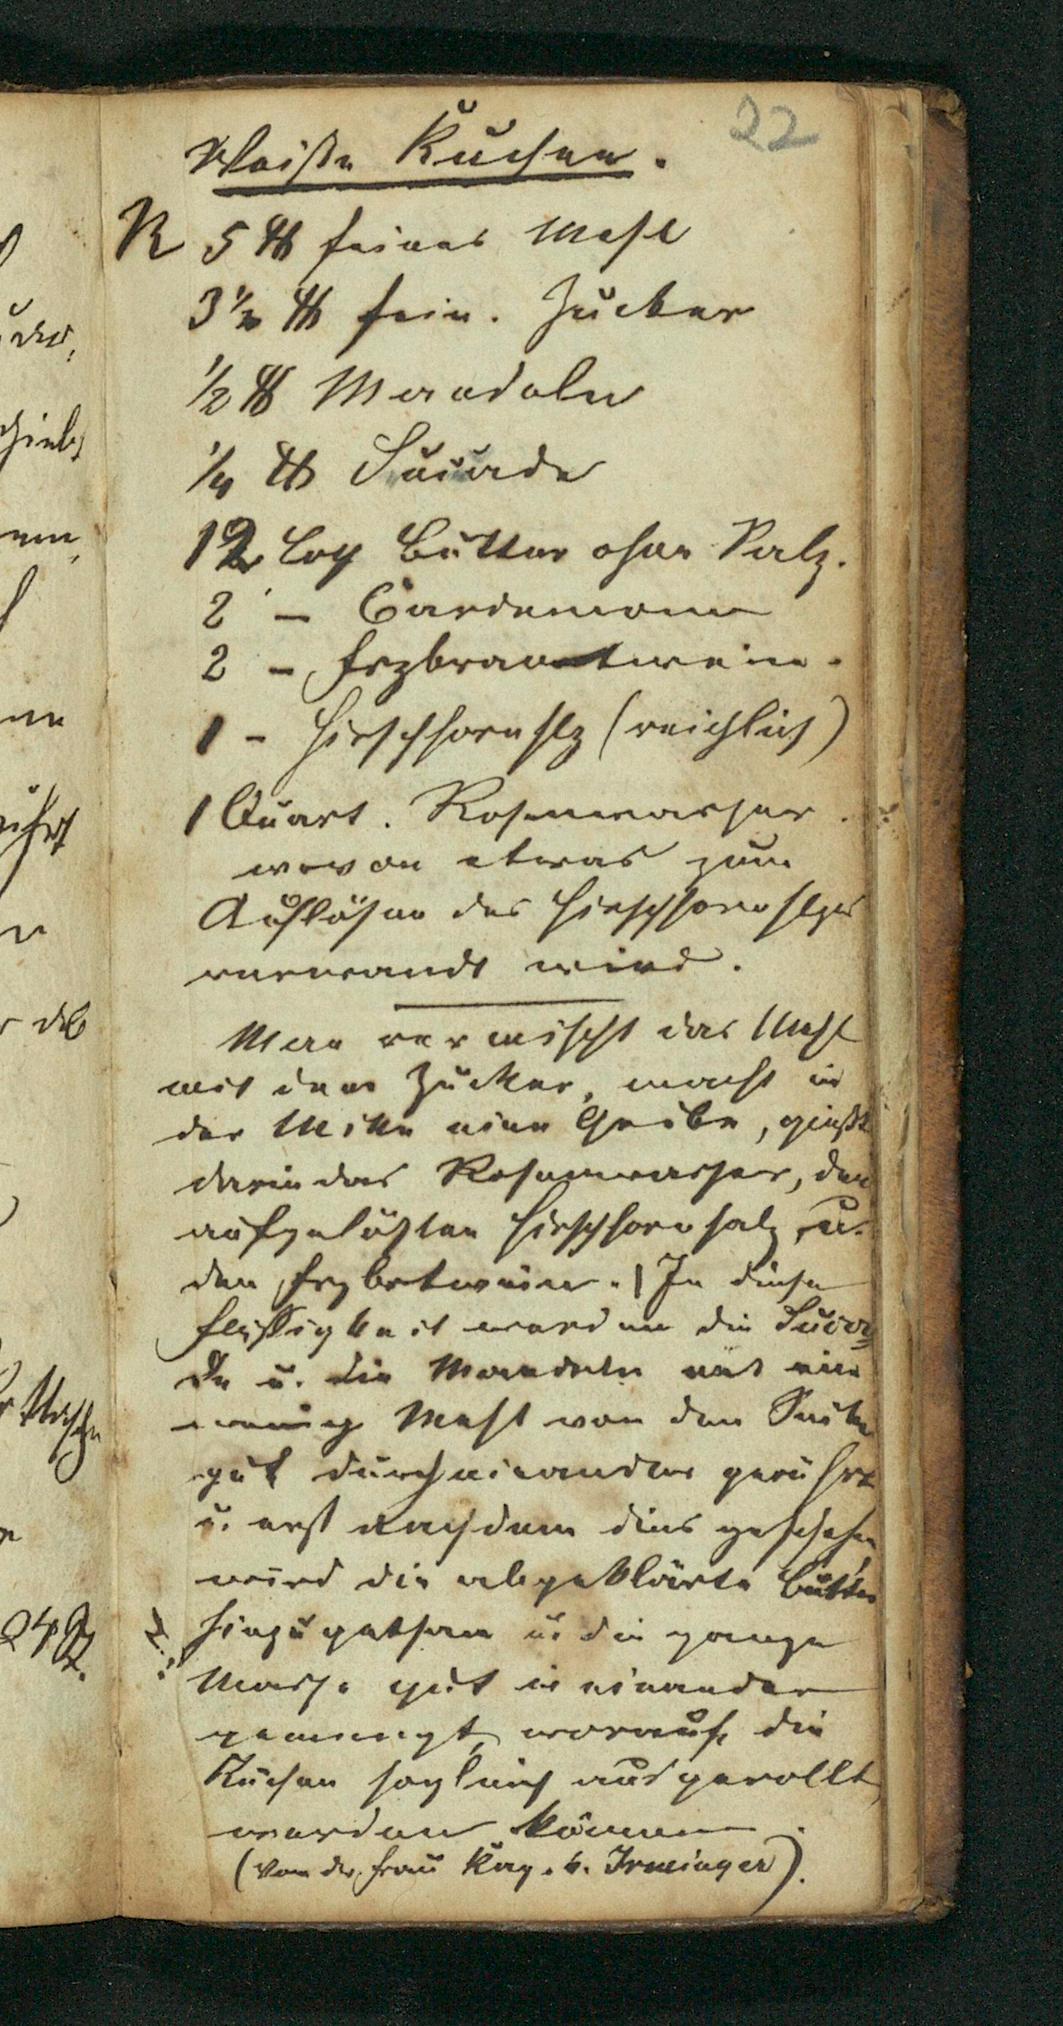 22
Weiße Kuchen.
R 5 ℔ feines Mehl
3 1/2 ℔ fein. Zucker
1/2 ℔ Mandeln
1/4 ℔ Succade
12 Loth Butter ohne Salz.
2 - Cardemomm
2 - Frzbrantwein.
1 - Hirschhornslz (reichlich)
1 Quart. Rosenwasser.
wovon etwas zum
Auflösen des Hirschhornslzes
verwandt wird.
Man vermischt das Mehl
mit dem Zucker, macht in
der Mitte eine Grube, gießt
darin das Rosenwasser, den
aufgelösten Hirschhornsalz, u.
den Frzbrtwein. In diese
Flüssigkeit werden die Succa
de u. die Mandeln mit ein
wenig Mehl von den Seiten
gut durcheinander gerührt
u. erst nachdem dies geschehen
wird die abgeklärte Butter
hinzugethan u. die ganze
Masse gut in einander
gemengt, worauf die
Kuchen sogleich ausgerollt
werden können.
(Von der Frau Irminger).